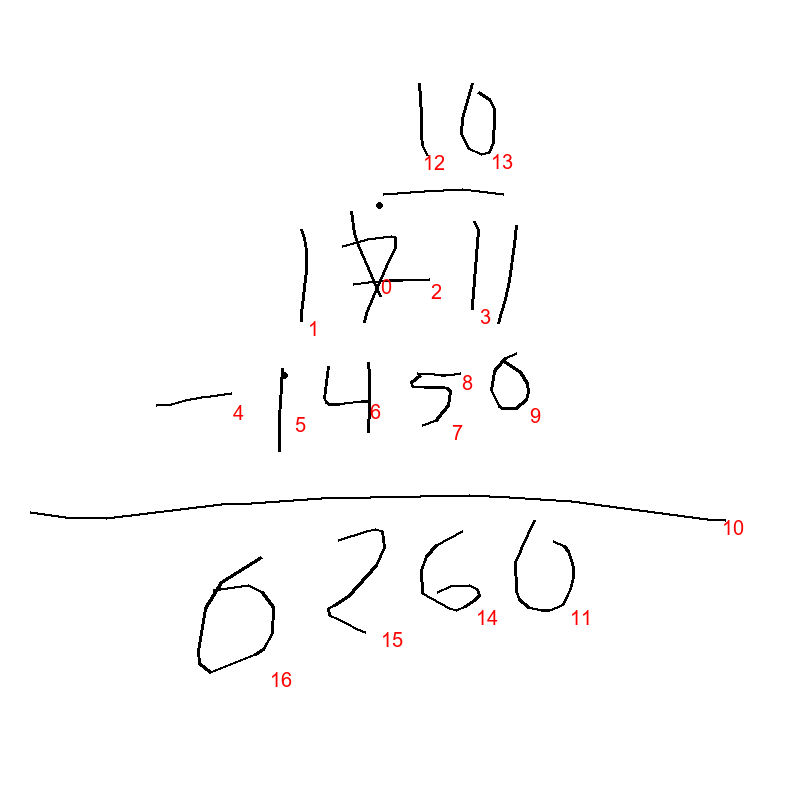 10
12 13
1711
0 2
1 3
-1450
8
4 5 6 7 9
10
0260
14 11
15
16